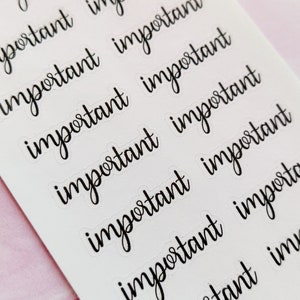 important important
important important
important important
important important
important important
important important
important